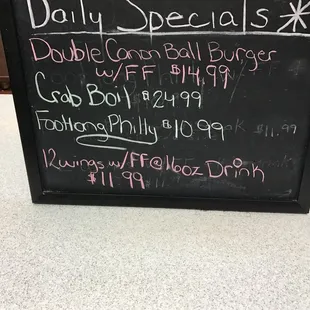 Daily Specials *
Double Canon Ball Burger
w/FF $14.99
Crab Boil $24.99
Footlong Philly $10.99
$11.99
12 wings w/FF @ 16oz Drink
$11.99